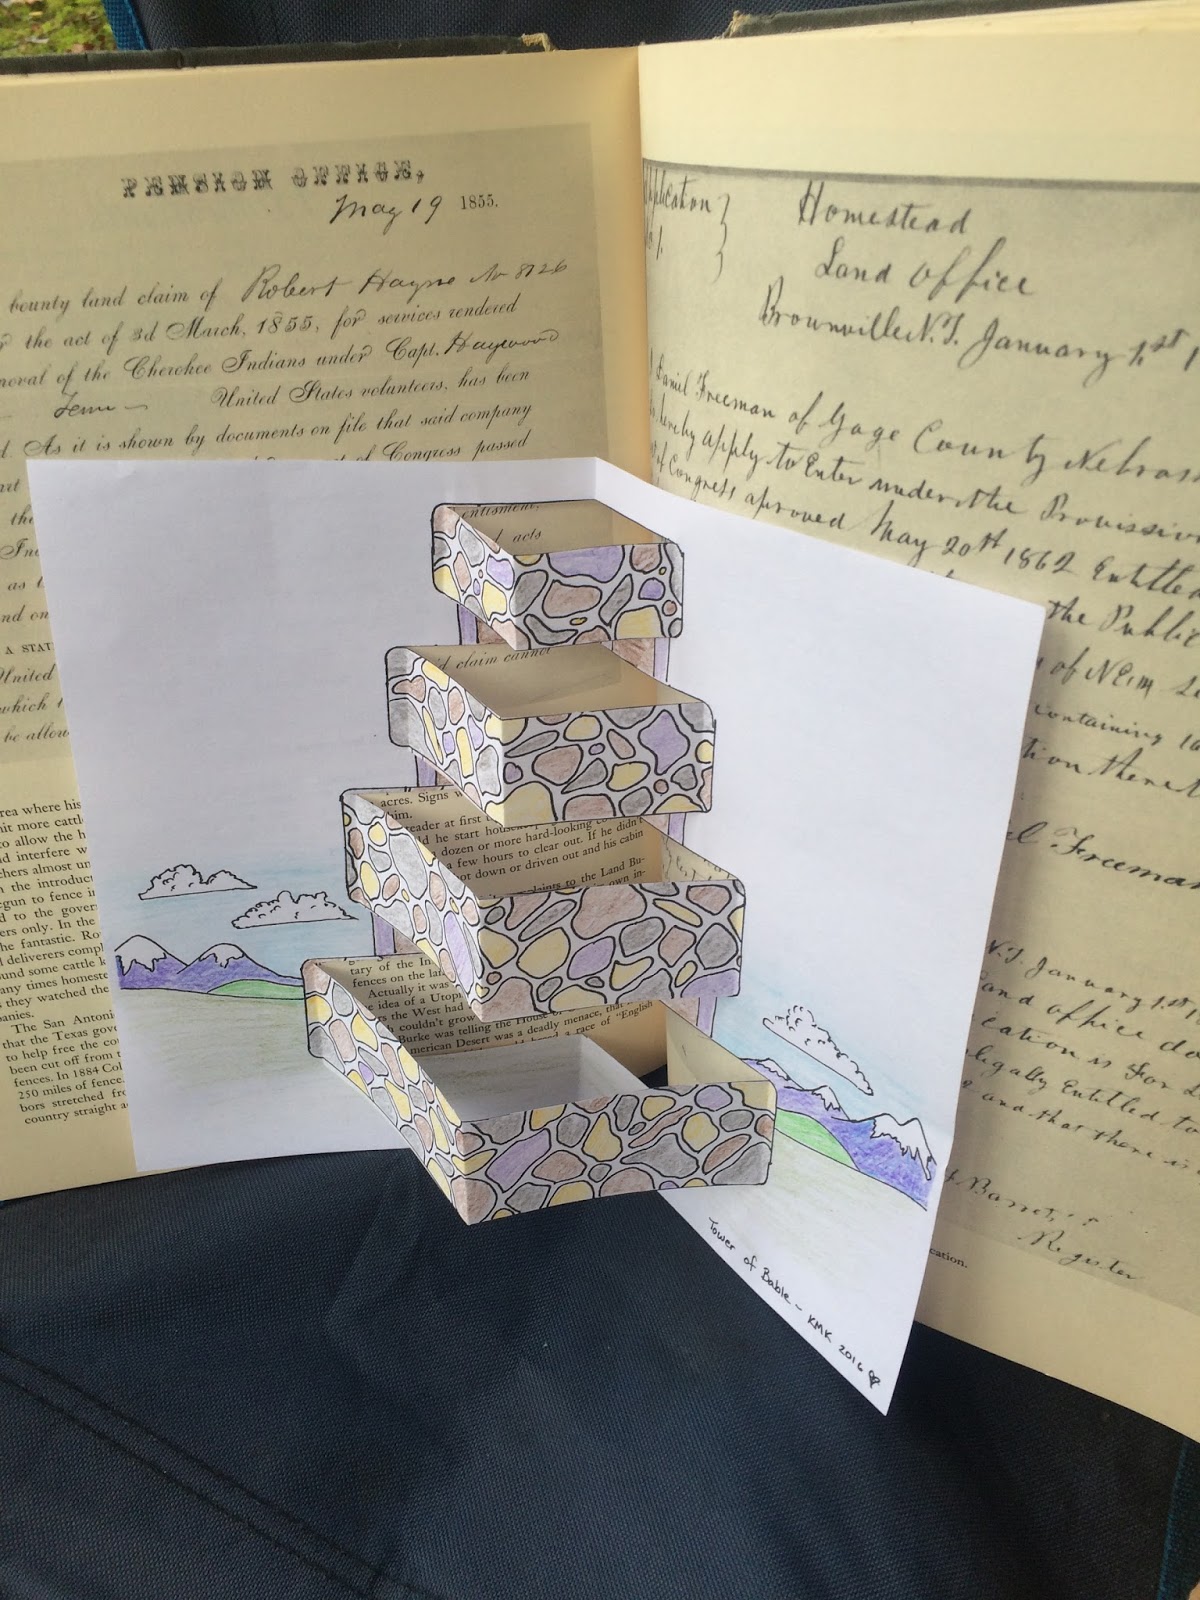 PENSION OFFICE,
May 19 1855.
bounty land claim of Robert Hayne No 8726
the act of 3d March, 1855, for services rendered
moval of the Cherokee Indians under Capt. Haywood
Tenn - United States volunteers, has been
As it is shown by documents on file that said company
of Congress passed
the
as
nd on
A STAT
United
which
be allow
rea where his
nit more cattl
to allow the h
nd interfere w
chers almost un
n the introduc
egun to fence i
d to the gover
ers only. In the
he fantastic. Ro
d deliverers compl
ound some cattle k
any times homeste
s they watched the
panies.
The San Antoni
that the Texas gov
to help free the co
been cut off from t
fences. In 1884 Col
250 miles of fence.
bors stretched fro
country straight a
entisment,
acts
claim cannot
acres. Signs w
him.
reader at first
ld he start
dozen or more hard-looking
a few hours to clear out. If he didn't
ot down or driven out and his cabin
to the Land Bu-
own in-
tary of the In
fences on the
Actually it was
idea of a Utopi
rs the West had
couldn't grow
Burke was telling the House of
merican Desert was a deadly menace, that
a race of "English
Application }
No 1. }
Homestead
Land Office
Brownville N.T. January 1st 1
I Daniel Freeman of Gage County Nebras
Do hereby apply to Enter under the Provission
of Congress aproved May 20th 1862 Entitled
the Public
of NE 1/4
containing 16
tion there
el Freeman
N.T. January 1st 1
and office do
cation is For
legally Entitled to
and that there is
Barret,
Register
cation.
Tower of Bable - KMK 2016